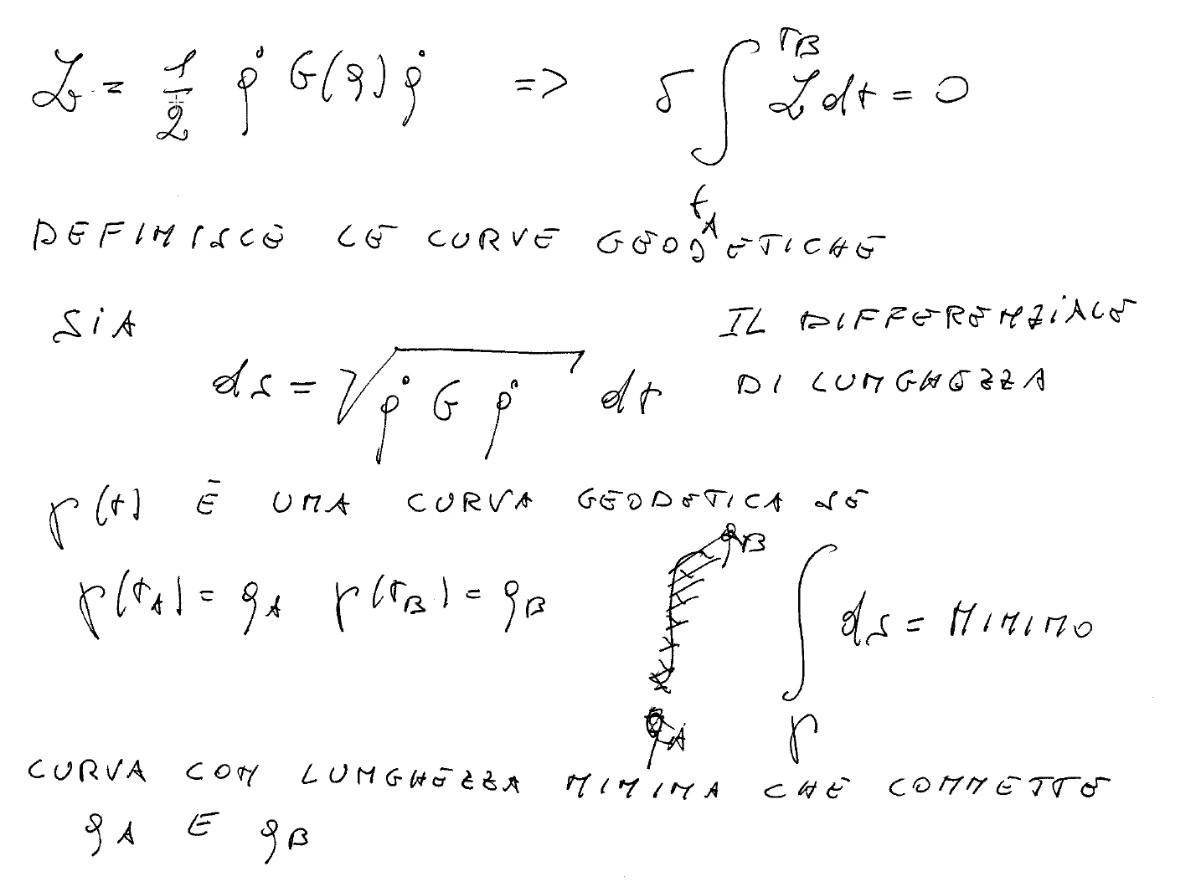 ℒ = 1/2 q̇ G(q) q̇ => δ ∫_{t_A}^{t_B} ℒ dt = 0
DEFINISCE LE CURVE GEODETICHE
SIA IL DIFFERENZIALE
ds = √(q̇ G q̇) dt DI LUNGHEZZA
γ(t) È UNA CURVA GEODETICA SE
γ(t_A) = q_A γ(t_B) = q_B q_B ∫_γ ds = MINIMO
q_A
CURVA CON LUNGHEZZA MINIMA CHE CONNETTE
q_A E q_B